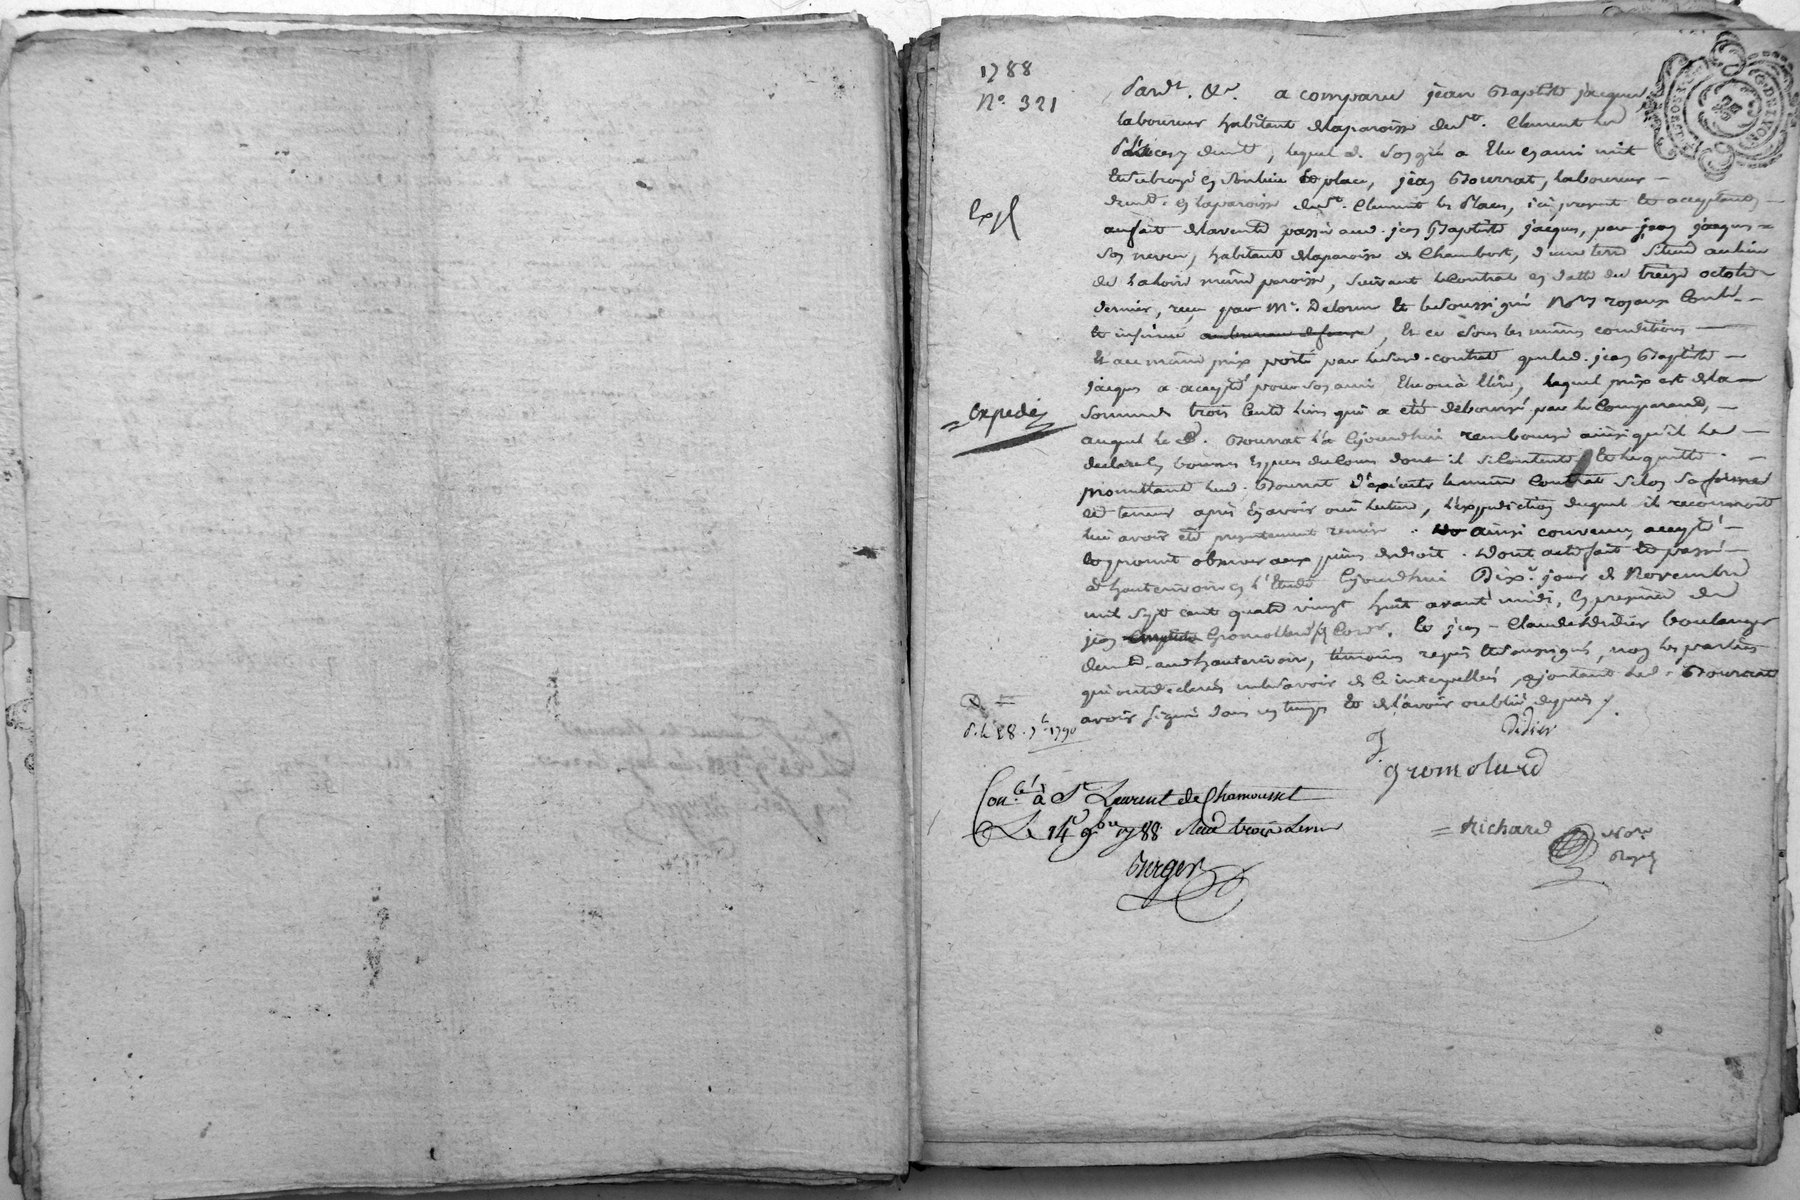 1788
N.º 321
Pard.t &c. a comparu jean Baptiste jacques
laboureur habitant de laparoisse de St. Clement les
Places, lequel de son gré a Elu en ami mit
et subrogé en son lieu et place, jean Bourrat, laboureur
demt. en laparoisse de St. Clement les Places, ici present et acceptant
aufait de lavente passée aud. jean Baptiste jacques, par jean jacques
son neveu, habitant de laparoisse de Chambost, d'une terre située au lieu
de laloire même paroisse, suivant le Contrat en datte du treize octobre
dernier, reçu par Me. Delorme et le soussigné Nores royaux Contlé
et insinué au bureau de , et ce sous les mêmes conditions
et au même prix porté par le susd. contrat que led. jean Baptiste
jacques a accepté pour son ami Elu ou à Elire, lequel prix est de la
somme de trois Cents livres qui a été déboursé par le Comparant,
auquel le d. Bourrat l'a Cejourdhui remboursé ainsi qu'il le
declare en bonnes Especes de Cours dont il se Contente et le quitte.
promettant led. Bourrat d'exécuter le même Contrat selon sa forme
et teneur après en avoir oui lecture, l'expedition duquel il reconnoit
lui avoir été presentement remise. ainsi convenu, accepté
et promit observer aux peines de droit. Dont acte fait et passé
à hauterivoire en l'Etude Cejourdhui Dixe. jour de Novembre
mil sept cent quatre vingt huit avant midi, en presence de
jean Gromollard Cordr. et jean-Claude Didier boulanger
demt. aud. hauterivoire, témoins requis et soussignés, non les parties
qui ont declaré ne le savoir de ce interpellés, ajoutant led. Bourrat
avoir signé dans un temps et de l'avoir oublié depuis.
Expl
Expediée
P. le 28. 7bre 1790
Didier
J. gromolard
Conlé. à St Laurent de Chamousset
Le 14e 9bre 1788. Reçu trois livres
Berger
Richard Nore
Royal